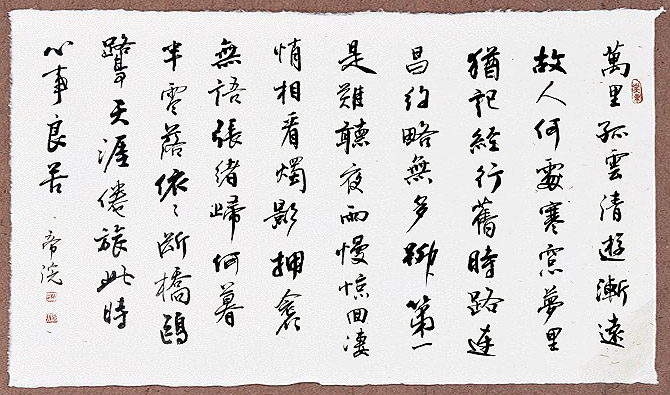 萬里孤雲清遊漸遠
故人何處寒窓夢里
猶記經行舊時路連
昌約略無多柳第一
是難聽夜雨慢惊回淒
悄相看燭影擁衾
無語張緒歸何暮
半零落依〻断橋鷗
鷺天涯倦旅此時
心事良苦